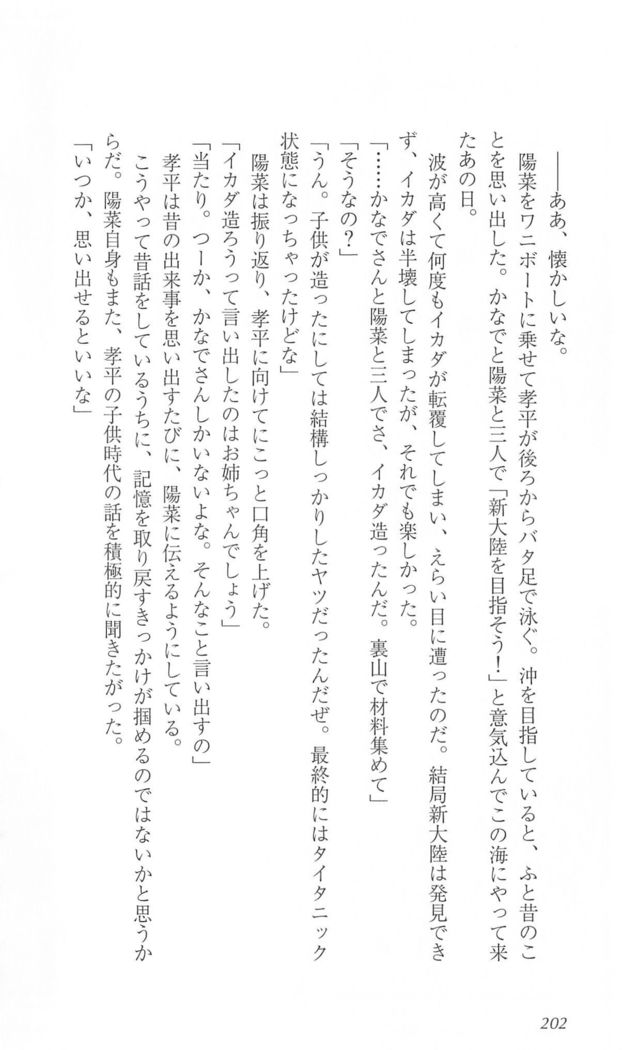 ――ああ、懐かしいな。
陽菜をワニボートに乗せて孝平が後ろからバタ足で泳ぐ。沖を目指していると、ふと昔のこ
とを思い出した。かなでと陽菜と三人で「新大陸を目指そう！」と意気込んでこの海にやって来
たあの日。
波が高くて何度もイカダが転覆してしまい、えらい目に遭ったのだ。結局新大陸は発見でき
ず、イカダは半壊してしまったが、それでも楽しかった。
「……かなでさんと陽菜と三人でさ、イカダ造ったんだ。裏山で材料集めて」
「そうなの？」
「うん。子供が造ったにしては結構しっかりしたヤツだったんだぜ。最終的にはタイタニック
状態になっちゃったけどな」
陽菜は振り返り、孝平に向けてにこっと口角を上げた。
「イカダ造ろうって言い出したのはお姉ちゃんでしょう」
「当たり。つーか、かなでさんしかいないよな。そんなこと言い出すの」
孝平は昔の出来事を思い出すたびに、陽菜に伝えるようにしている。
こうやって昔話をしているうちに、記憶を取り戻すきっかけが掴めるのではないかと思うか
らだ。陽菜自身もまた、孝平の子供時代の話を積極的に聞きたがった。
「いつか、思い出せるといいな」
202